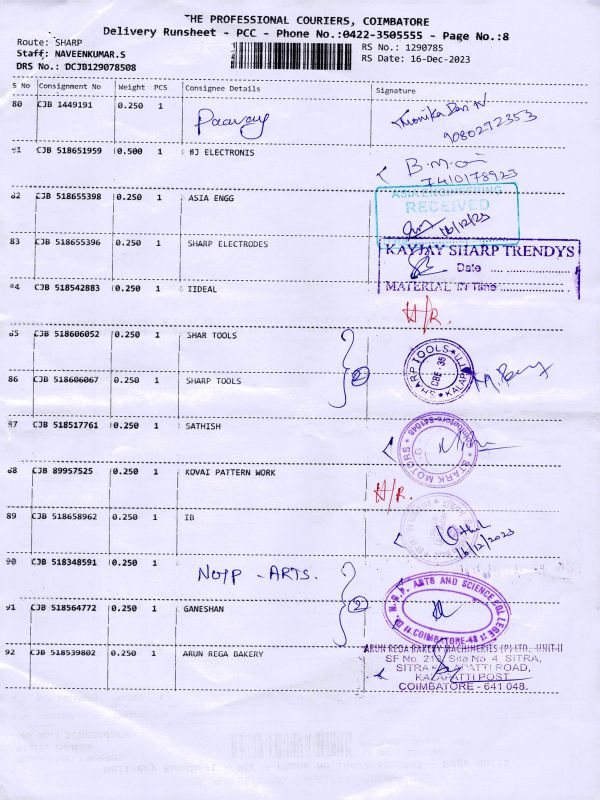 THE PROFESSIONAL COURIERS, COIMBATORE
Delivery Runsheet - PCC - Phone No.:0422-3505555 - Page No.:8
Route: SHARP
Staff: NAVEENKUMAR.S
DRS No.: DCJB129078508
RS No.: 1290785
RS Date: 16-Dec-2023
S No Consignment No Weight PCS Consignee Details Signature
80 CJB 1449191 0.250 1
9080272353
81 CJB 518651959 0.500 1 BJ ELECTRONIS
7410178923
82 CJB 518655398 0.250 1 ASIA ENGG
ASIA ENGINEERING
RECEIVED
16/12/23
83 CJB 518655396 0.250 1 SHARP ELECTRODES
KAYJAY SHARP TRENDYS
Date
MATERIAL In Time
84 CJB 518542883 0.250 1 IIDEAL
H/R.
85 CJB 518606052 0.250 1 SHAR TOOLS
2
SHARP TOOLS
CBE 35
86 CJB 518606067 0.250 1 SHARP TOOLS
87 CJB 518517761 0.250 1 SATHISH
STARK MOTORS
88 CJB 89957525 0.250 1 KOVAI PATTERN WORK
H/R.
89 CJB 518658962 0.250 1 IB
16/12/2023
90 CJB 518348591 0.250 1 NGP - ARTS.
2
Dr. N.G.P. ARTS AND SCIENCE COLLEGE
COIMBATORE-48
91 CJB 518564772 0.250 1 GANESHAN
92 CJB 518539802 0.250 1 ARUN REGA BAKERY
ARUN REGA BAKERY MACHINERIES (P) LTD., UNIT-II
SF No. 213, Site No. 4, SITRA,
SITRA KALAPATTI ROAD,
KALAPATTI POST,
COIMBATORE - 641 048.